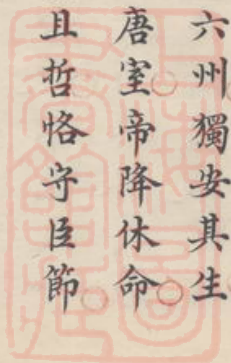 六州獨安其生
唐室帝降休命
且哲恪守臣節